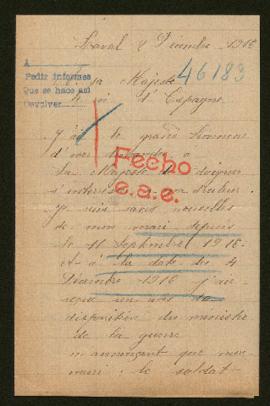 Laval 8 Décembre 1916
46183
A
Pedir informes
Que se hace así
Devolver
A sa Majesté
Roi d'Espagne
J'ai le grand honneur
la Majesté de daigner
s'intéresser
Je suis sans nouvelles
de mon mari depuis
le 11 Septembre 1916
et à la date du 4
Décembre 1916 j'ai
reçu un avis de
disparition du ministre
de la guerre
m'annonçant que mon
mari le soldat
Fecho
e.a.e.